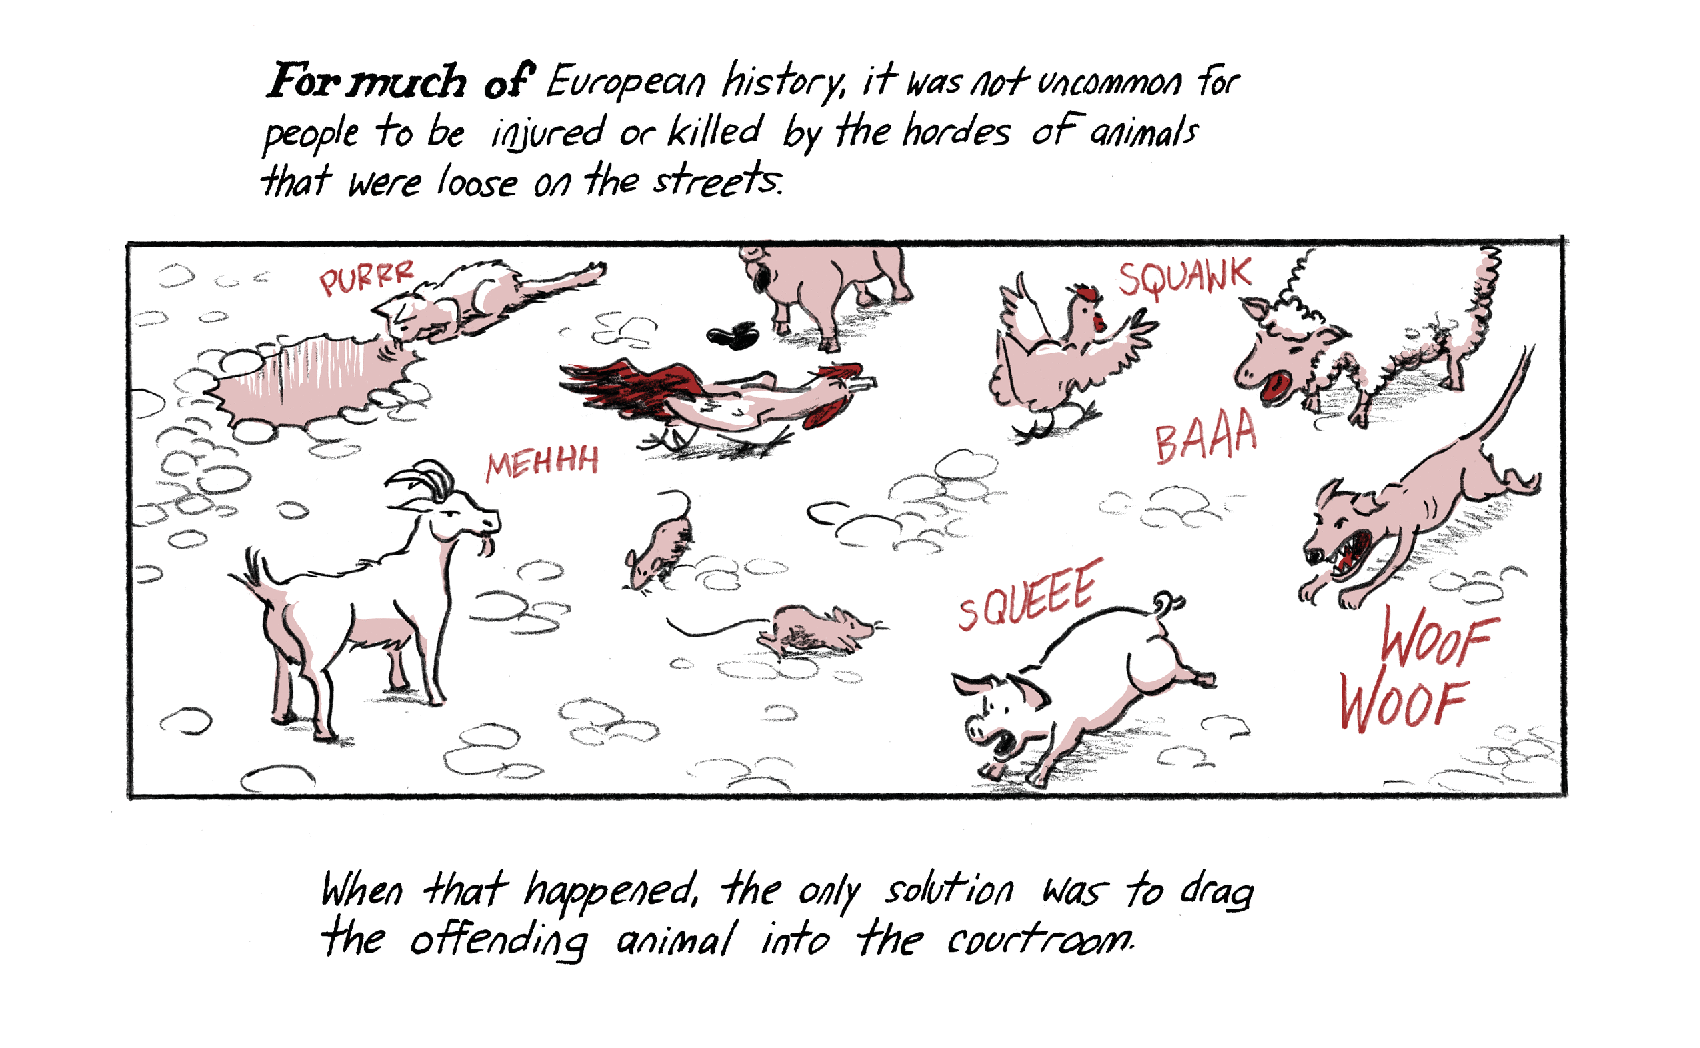 For much of European history, it was not uncommon for
people to be injured or killed by the hordes of animals
that were loose on the streets.
PURRR
SQUAWK
MEHHH
BAAA
SQUEEE
WOOF
WOOF
When that happened, the only solution was to drag
the offending animal into the courtroom.